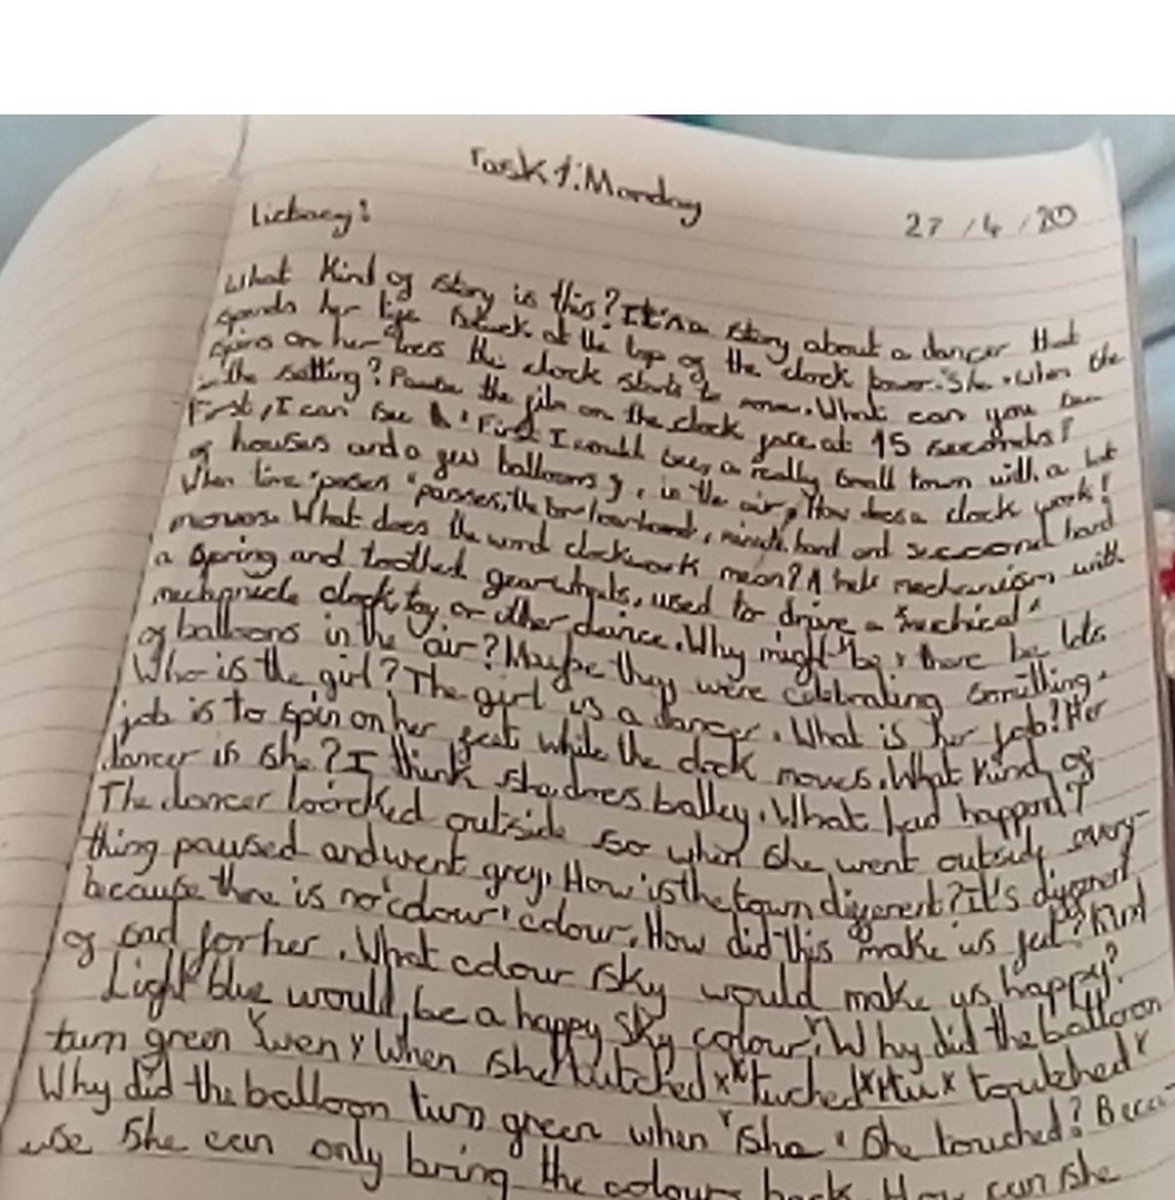 Task 1: Monday
27/4/20
Literacy:
What Kind of story is this? It's a story about a dancer that
spends her life stuck at the top of the clock tower. She when she
spins on her toes the clock starts to move. What can you see
in the setting? Pause the film on the clock face at 15 seconds?
First, I can see First I could see a really small town with a lot
of houses and a few balloons in the air, How does a clock work?
When time 'passes' passes, the hour hand, minute hand and seccond hand
moves. What does the word clockwork mean? A mechanism with
a spring and toothed gearwheels, used to drive a mechical
clock, toy or other device. Why might there be lots
of balloons in the air? Maybe they were celebrating something.
Who is the girl? The girl is a dancer. What is her job? Her
job is to spin on her feet while the clock moves. What kind of
dancer is she? I think she does balley. What had happend?
The dancer loocked outside so when she went outside every-
thing paused and went grey. How is the town different? It's different
because there is no 'colour' colour. How did this make us feel? Kind
of sad for her. What colour sky would make us happy?
Light blue would be a happy sky colour. Why did the balloon
turn green wen When she tutched tuched toutched
Why did the balloon turn green when 'sha' she touched? Beca
use she can only bring the colours back. How can she